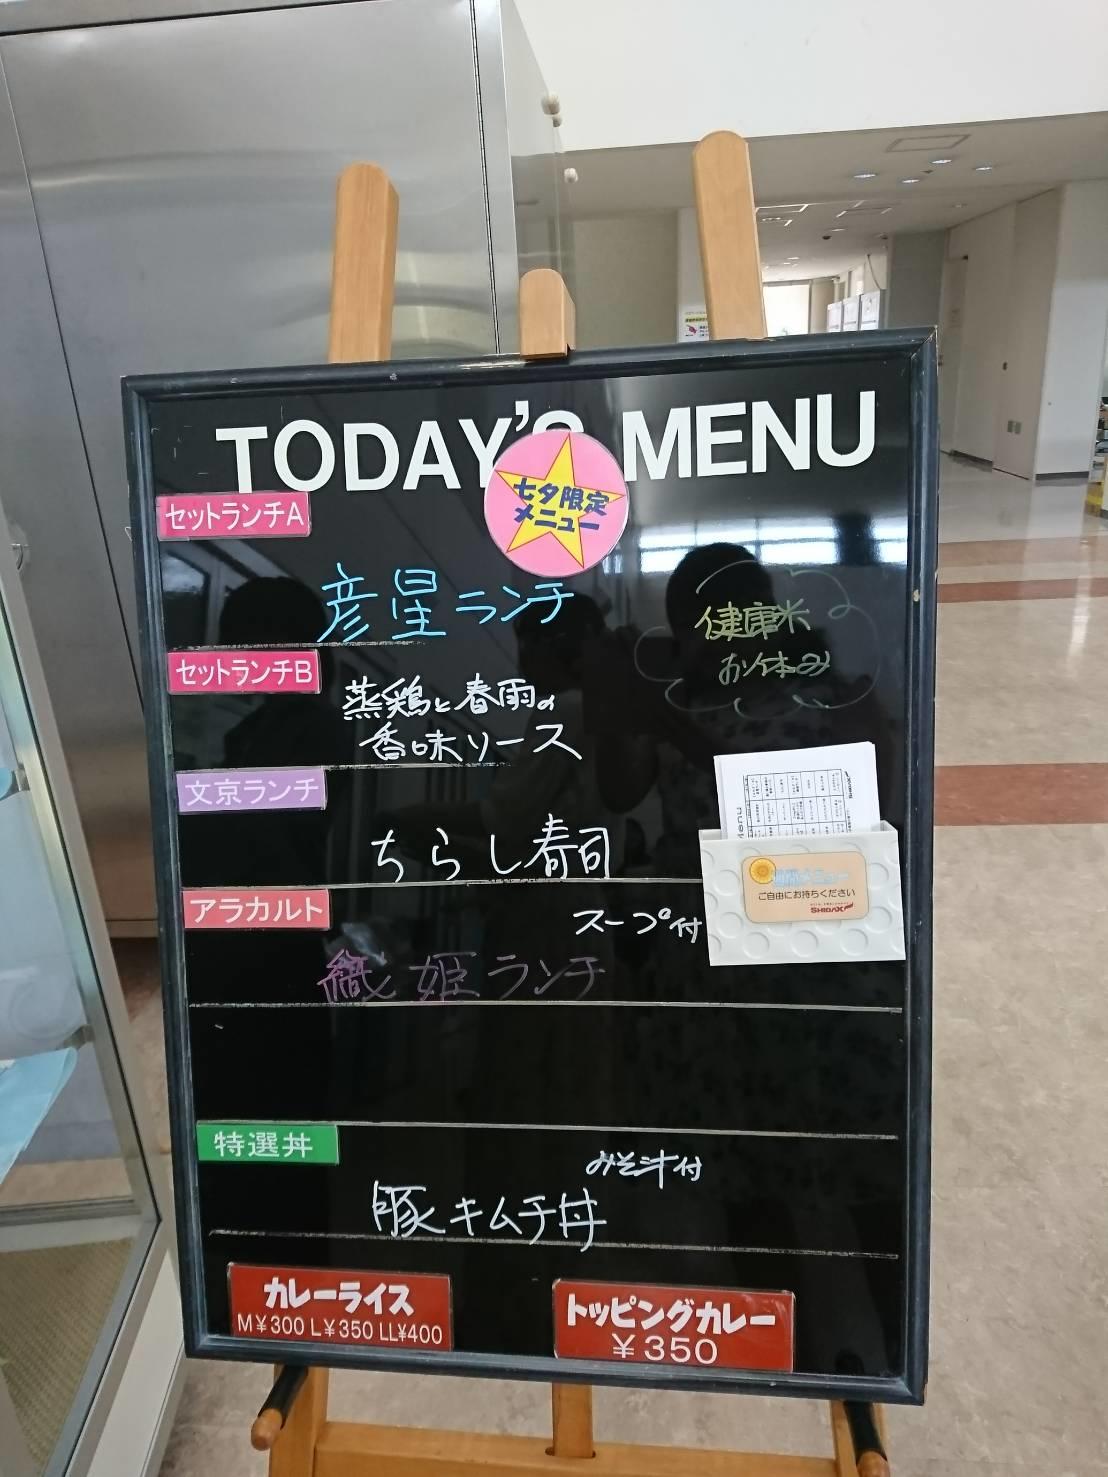 TODAY'S MENU
七夕限定
メニュー
セットランチA
彦星ランチ
健康米
お休み
セットランチB
蒸鶏と春雨の
香味ソース
文京ランチ
ちらし寿司
Menu
メニュー
ご自由にお持ちください
SHiDAX
アラカルト
スープ付
織姫ランチ
特選丼
みそ汁付
豚キムチ丼
カレーライス
M¥300 L¥350 LL¥400
トッピングカレー
¥350